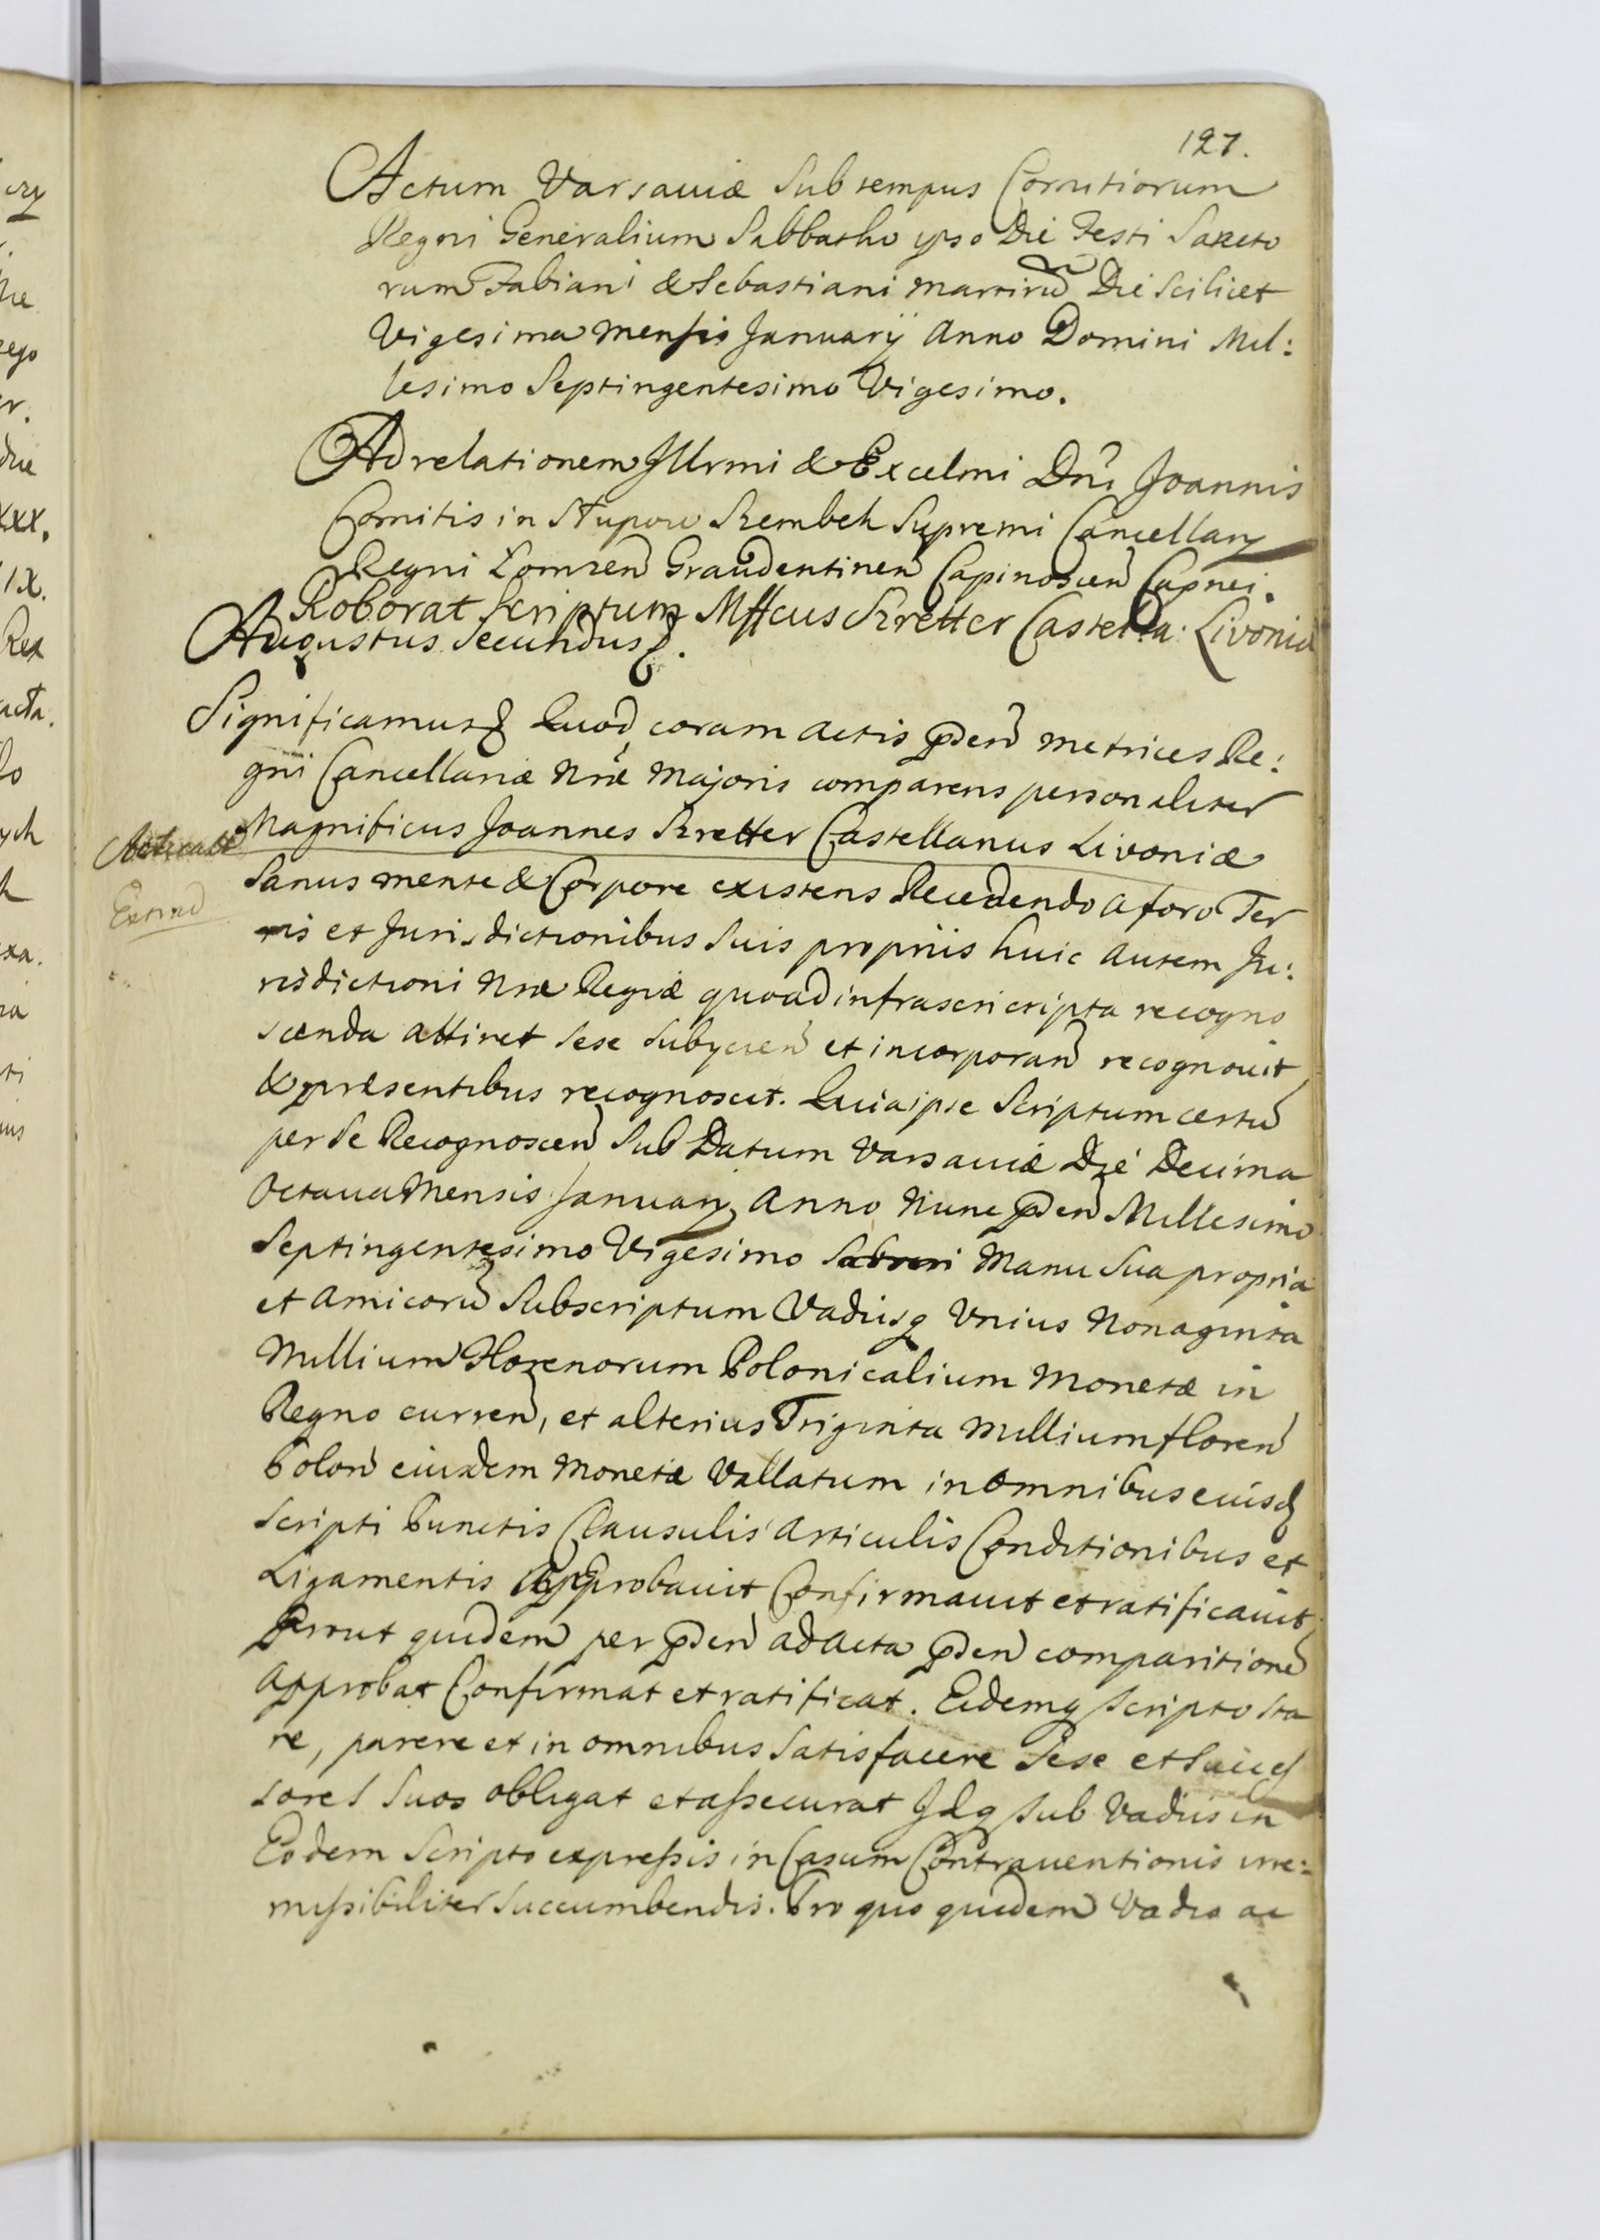 127.
Actum Varsaviæ Sub tempus Comitiorum
Regni Generalium Sabbatho ipso Die Festi Sancto
rum Fabiani & Sebastiani Martirū Die Scilicet
Vigesima Mensis January Anno Domini Mil:
lesimo Septingentesimo Vigesimo.
Ad relationem Illrmi & Excelmi Dni Joannis
Comitis in Słupow Szembek Supremi Cancellary
Regni Łomzen Graudentinen Capinoscen Capnei.
Roborat Scriptum Mffcus Szretter Castella: Livonia
Augustus Secundus &.
Significamus & Quod coram Actis pden Metrices Re:
gni Cancellariæ Nræ Majoris comparens personaliter
Magnificus Joannes Szretter Castellanus Livoniæ
Sanus mente & Corpore existens Recedendo a foro Ter
ris et Jurisdictionibus Suis propriis huic autem Ju:
risdictioni Nræ Regiæ quoad infrascricripta recogno
scenda attinet Sese Subycien et incorporan recognovit
& præsentibus recognoscit. Quia ipse Scriptum certū
per Se Recognoscen Sub Datum Varsaviæ Die Decima
Octava Mensis January Anno Nunc pden Millesimo
Septingentesimo Vigesimo Manu Sua propria
et Amicorū Subscriptum Vadiisq Unius Nonaginta
Millium Florenorum Polonicalium Monetæ in
Regno curren, et alterius Triginta Millium floren
Polon eiusdem Monetæ Vallatum in omnibus eiusd
Scripti Punctis Clausulis Articulis Conditionibus et
Ligamentis Approbavit Confirmavit et ratificavit
Prout quidem per pden ad Acta pden comparitione
Approbat Confirmat et ratificat. Eidemq Scripto Sta
re, parere et in omnibus Satisfacere Sese et Succes
sores Suos obligat et assecurat Idq Sub Vadiis in
Eodem Scripto expressis in Casum Contraventionis irre:
missibiliter Succumbendis. Pro quo quidem Vadio ac
Extrad